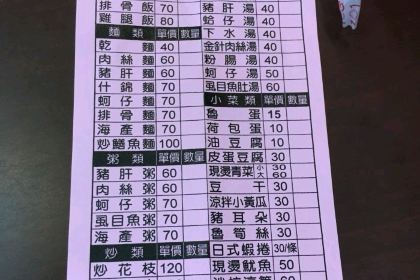 排骨飯 70
雞腿飯 80
麵類 單價 數量
乾麵 40
肉絲麵 60
豬肝麵 60
什錦麵 60
蚵仔麵 60
排骨麵 70
海產麵 70
炒鱔魚麵 100
粥類 單價 數量
豬肝粥 60
肉絲粥 60
蚵仔粥 60
虱目魚粥 70
海產粥 70
炒類 單價 數量
炒花枝 120
豬肝湯 40
蛤仔湯 40
下水湯 40
金針肉絲湯 40
粉腸湯 50
虱目魚肚湯 60
小菜類 單價 數量
魯蛋 15
荷包蛋 10
油豆腐 30
皮蛋豆腐 30
現燙青菜 小30 大60
豆干 30
涼拌小黃瓜 30
豬耳朵 30
魯筍絲 30
日式蝦捲 30/條
現燙魷魚 50